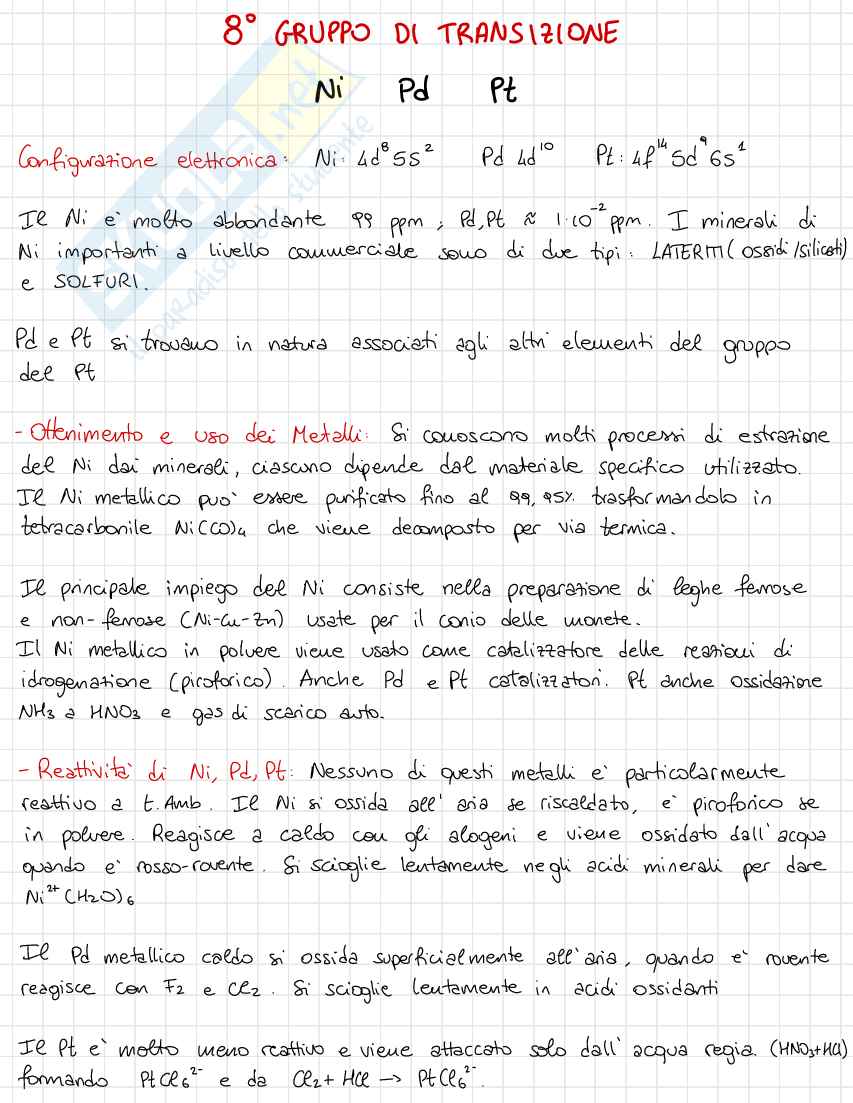 8° GRUPPO DI TRANSIZIONE
Ni Pd Pt
Configurazione elettronica: Ni: 4d⁸5s² Pd 4d¹⁰ Pt: 4f¹⁴5d⁹6s¹
Il Ni e' molto abbondante 99 ppm; Pd, Pt ≈ 1·10⁻² ppm. I minerali di
Ni importanti a livello commerciale sono di due tipi: LATERITI (ossidi/silicati)
e SOLFURI.
Pd e Pt si trovano in natura associati agli altri elementi del gruppo
del Pt
- Ottenimento e uso dei Metalli: Si conoscono molti processi di estrazione
del Ni dai minerali, ciascuno dipende dal materiale specifico utilizzato.
Il Ni metallico puo' essere purificato fino al 99,95% trasformandolo in
tetracarbonile Ni(CO)₄ che viene decomposto per via termica.
Il principale impiego del Ni consiste nella preparazione di leghe ferrose
e non-ferrose (Ni-Cu-Zn) usate per il conio delle monete.
Il Ni metallico in polvere viene usato come catalizzatore delle reazioni di
idrogenazione (piroforico). Anche Pd e Pt catalizzatori. Pt anche ossidazione
NH₃ a HNO₃ e gas di scarico auto.
- Reattivita' di Ni, Pd, Pt: Nessuno di questi metalli e' particolarmente
reattivo a t.Amb. Il Ni si ossida all'aria se riscaldato, e' piroforico se
in polvere. Reagisce a caldo con gli alogeni e viene ossidato dall'acqua
quando e' rosso-rovente. Si scioglie lentamente negli acidi minerali per dare
Ni²⁺(H₂O)₆
Il Pd metallico caldo si ossida superficialmente all'aria, quando e' rovente
reagisce con F₂ e Cl₂. Si scioglie lentamente in acidi ossidanti
Il Pt e' molto meno reattivo e viene attaccato solo dall'acqua regia (HNO₃+HCl)
formando PtCl₆²⁻ e da Cl₂ + HCl → PtCl₆²⁻.